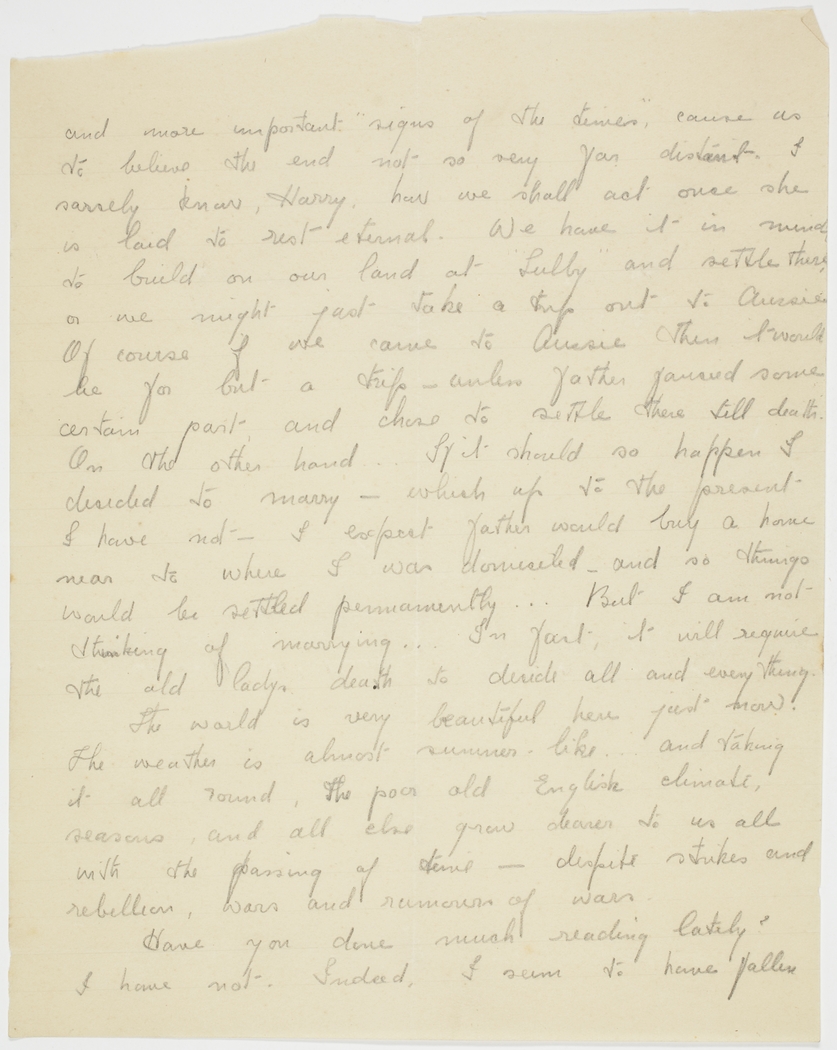 and more important "signs of the times", cause us
to believe the end not so very far distant. I
sarsely know, Harry, how we shall act once she
is laid to rest eternal. We have it in mind
to build on our land at "Sully" and settle there,
or we might just take a trip out to Aussie.
Of course if we came to Aussie then it would
be for but a trip — unless father found some
certain part, and chose to settle there till death.
On the other hand... If it should so happen I
decided to marry — which up to the present
I have not — I expect father would buy a home
near to where I was domiciled — and so things
would be settled permanently... But I am not
thinking of marrying... In fact, it will require
the old ladys death to decide all and everything.
The world is very beautiful here just now.
The weather is almost summer-like... and taking
it all round, the poor old English climate,
seasons, and all else grow dearer to us all
with the passing of time — despite strikes and
rebellion, wars and rumours of wars.
Have you done much reading lately?
I have not. Indeed, I seem to have fallen